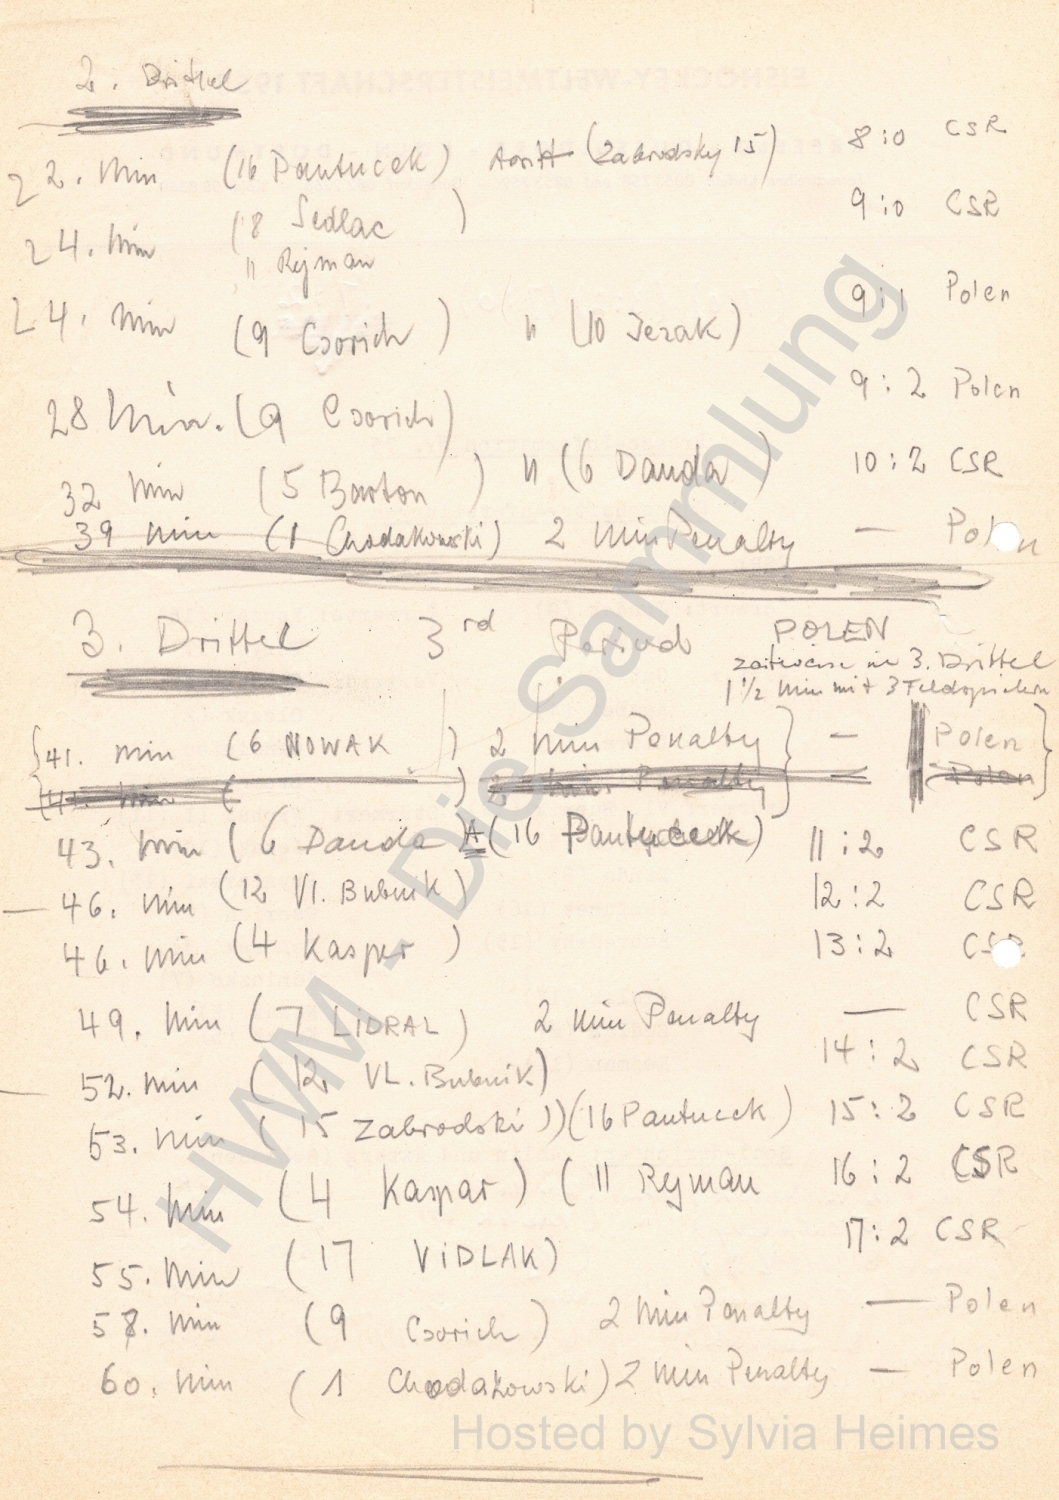 2. Drittel
22. Min (16 Pantucek) Assist (Zabrodsky 15) 8:0 CSR
24. Min (8 Sedlac) 9:0 CSR
11 Rejman
24. Min (9 Csorich) " (10 Jezak) 9:1 Polen
28 Min. (9 Csorich) 9:2 Polen
32 Min (5 Barton) " (6 Danda) 10:2 CSR
39 Min (1 Chodakowski) 2 Min Penalty — Polen
3. Drittel 3rd Period POLEN
zeitweise in 3. Drittel
1 1/2 Min mit 3 Feldspielern
41. Min (6 NOWAK) 2 Min Penalty — Polen
41. Min ( ) 2 Min Penalty — Polen
43. Min (6 Danda A (16 Pantucek) 11:2 CSR
— 46. Min (12 Vl. Bubnik) 12:2 CSR
46. Min (4 Kasper) 13:2 CSR
49. Min (7 LiDRAL) 2 Min Penalty — CSR
— 52. Min (12 VL. Bubnik) 14:2 CSR
53. Min (15 Zabrodski)) (16 Pantucek) 15:2 CSR
54. Min (4 Kaspar) (11 Rejman 16:2 CSR
55. Min (17 ViDLAK) 17:2 CSR
58. Min (9 Csorich) 2 Min Penalty — Polen
60. Min (1 Chodakowski) 2 Min Penalty — Polen
HWM - Die Sammlung
Hosted by Sylvia Heimes